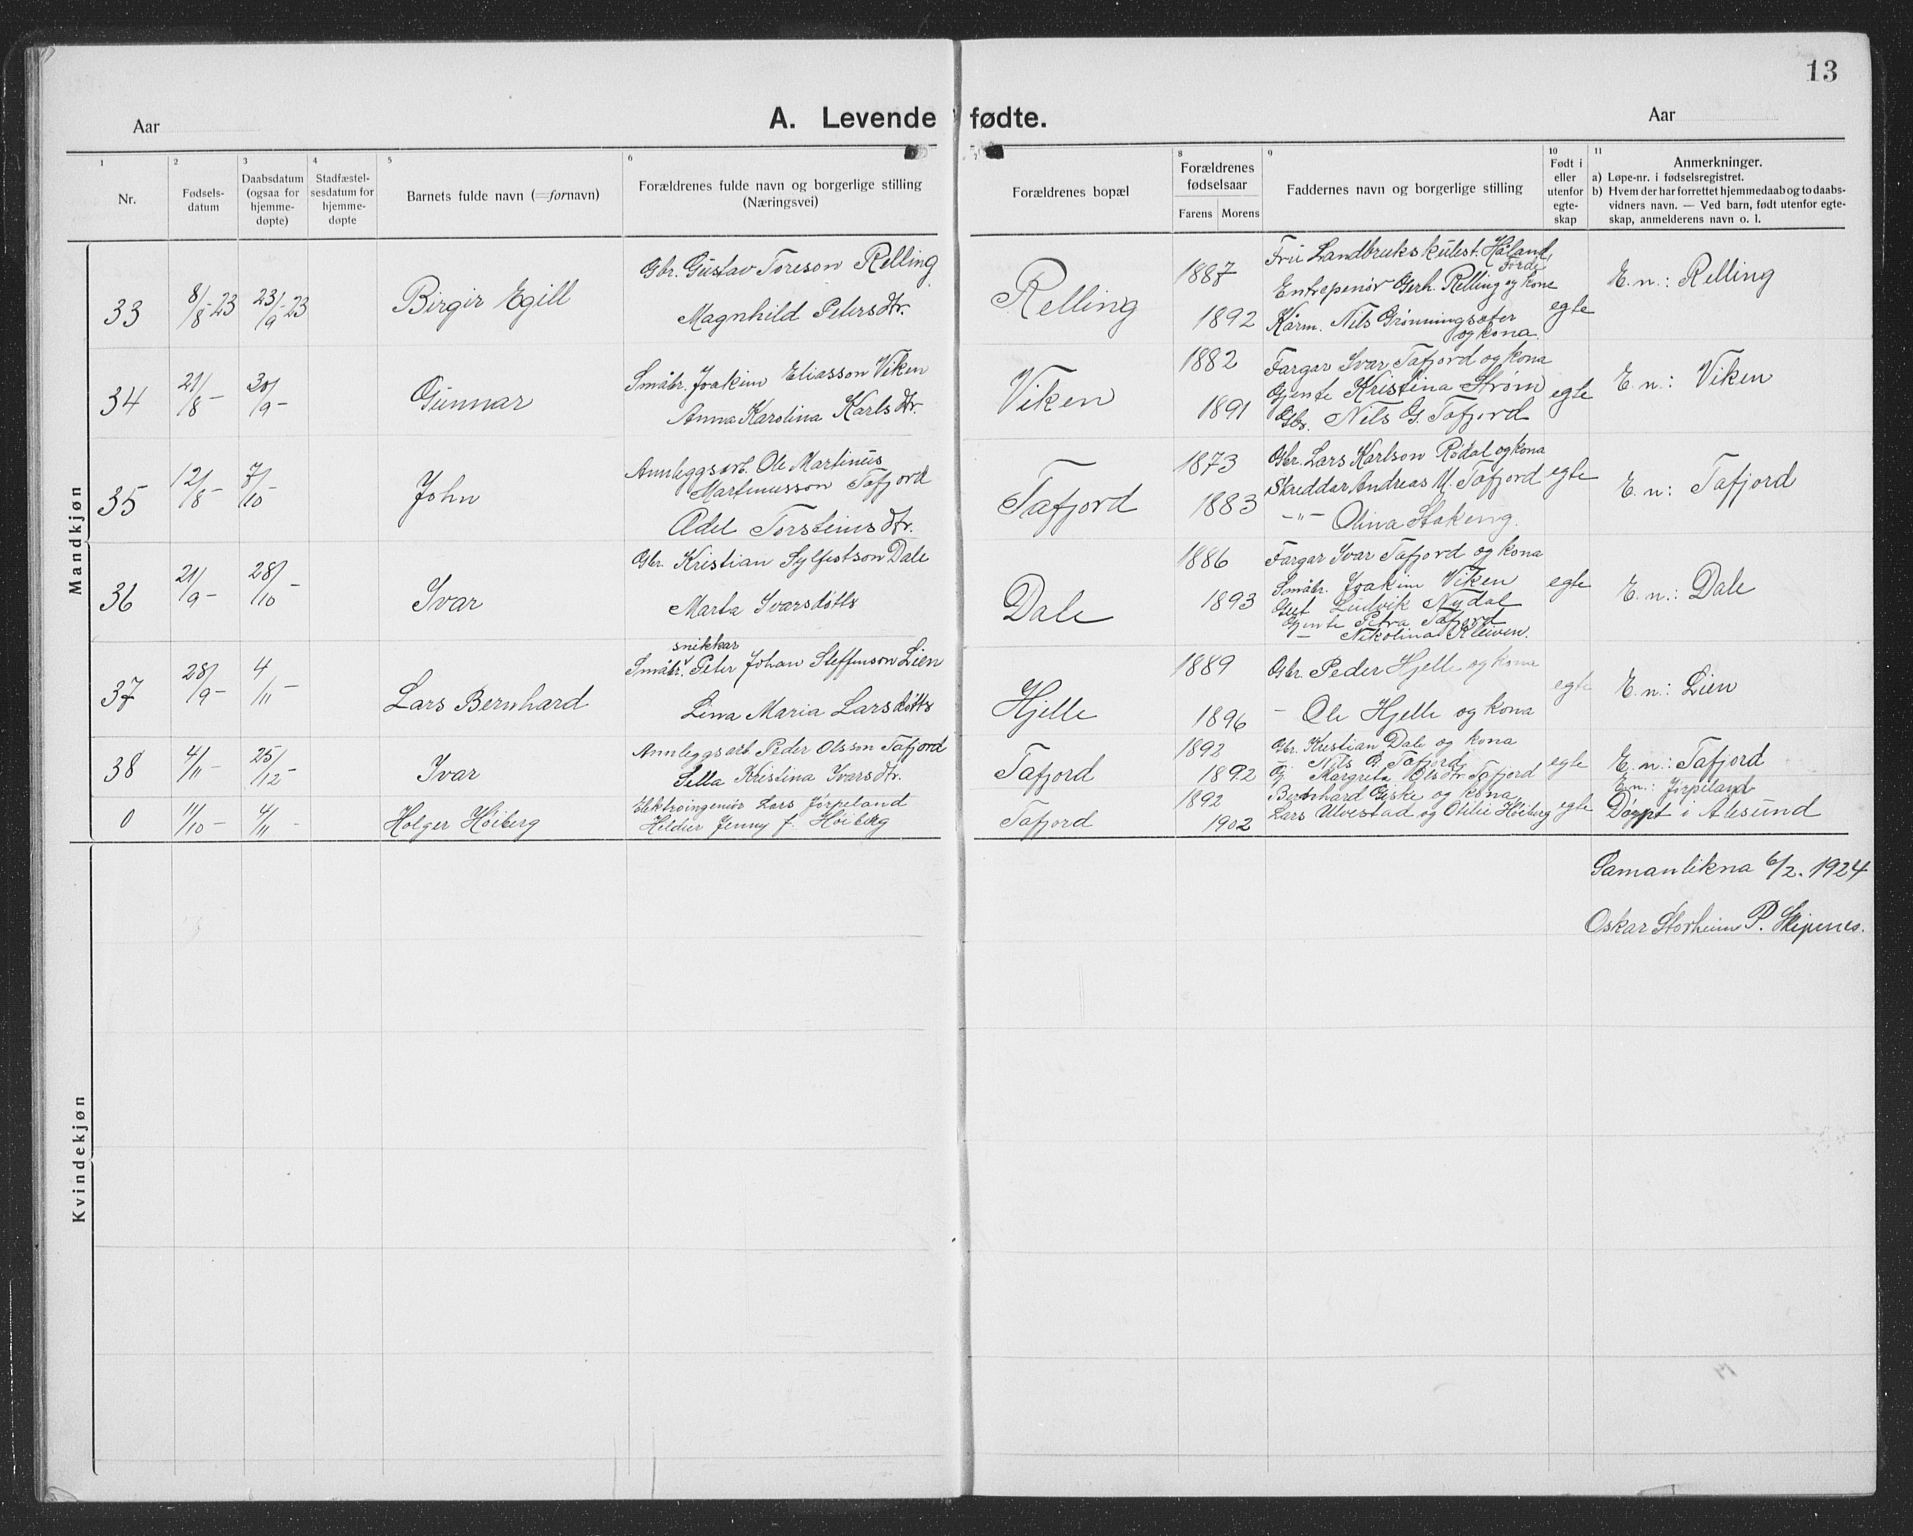 13
A. Levende fødte.
Aar
Aar
1 2 3 4 5 6 8 9 10 11
Nr.
Fødsels-
datum
Daabsdatum
(ogsaa for
hjemme-
døpte)
Stadfæstel-
sesdatum for
hjemme-
døpte
Barnets fulde navn (=fornavn)
Forældrenes fulde navn og borgerlige stilling
(Næringsvei)
Forældrenes bopæl
Forældrenes
fødselsaar
Farens Morens
Faddernes navn og borgerlige stilling
Født i
eller
utenfor
egte-
skap
Anmerkninger.
a) Løpe-nr. i fødselsregistret.
b) Hvem der har forrettet hjemmedaab og to daabs-
vidners navn. — Ved barn, født utenfor egte-
skap, anmelderens navn o. l.
Mandkjøn
33
8/8-23
23/9-23
Birgir Egill
Gbr. Gustav Toreson Relling
Magnhild Petersdtr.
Relling
1887
1892
Fru Landbrukskulest. Håland,
Førde
Entrepenør Gerh. Relling og kone
Kårm. Nils Grønningsæter
og kona
egte
E. n.: Relling
34
21/8-
30/9-
Gunnar
Småbr. Joakim Eliasson Viken
Anna Karolina Karlsdtr.
Viken
1882
1891
Fargar Ivar Tafjord og kona
Gjente Kristina Strøm
Gbr. Nils G. Tafjord
egte
E. n.: Viken
35
12/8-
7/10-
John
Annleggsarb. Ole Martinus
Martinusson Tafjord
Adel Torsteinsdtr.
Tafjord
1873
1883
Gbr. Lars Karlson Rødal og kona
Skreddar Andreas M. Tafjord
-"- Olina Stokeng.
egte
E. n: Tafjord
36
21/9-
28/10-
Ivar
Gbr. Kristian Sylfestson Dale
Marta Ivarsdotts
Dale
1886
1893
Fargar Ivar Tafjord og kona
Småbr. Joakim Viken
Gut Ludvik Nydal
Gjente Petra Tafjord
— Nikolina Kleiven.
egte
E. n.: Dale
37
28/9-
4/11-
Lars Bernhard
snikkar
Småbr. Peter Johan Steffenson Lien
Lina Maria Larsdotts
Hjelle
1889
1896
Gbr. Peder Hjelle og kona
- Ole Hjelle og kona
egte
E. n.: Lien
38
4/11-
25/12-
Ivar
Annleggsarb. Peder Olsson Tafjord
Sella Kristina Ivarsdtr.
Tafjord
1892
1892
Gbr. Kristian Dale og kona
- Nils G. Tafjord
G. Margreta Olsdtr Tafjord
egte
E. n.: Tafjord
0
11/10-
4/11-
Holger Höiberg
Elektroingeniør Lars Jørpeland
Hildur Jenny f. Höiberg
Tafjord
1892
1902
Bernhard Giske og kona
Lars Ulvestad og Otilie Höiberg
egte
E. n.: Jørpeland
Døypt i Ålesund
Samanlikna 6/2. 1924
Oskar Storheim P. Skipenes.
Kvindekjøn